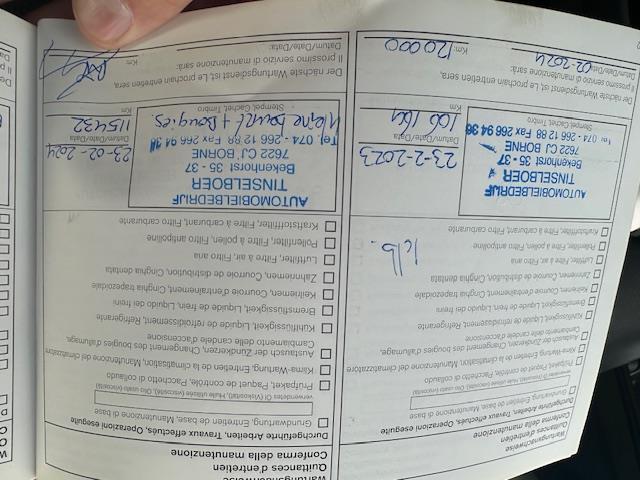 Wartungsnachweise
Quittances d'entretien
Conferma della manutenzione
Durchgeführte Arbeiten, Travaux effectués, Operazioni eseguite
Grundwartung, Entretien de base, Manutenzione di base
verwendetes Öl (Viskosität), Huile utilisée (viscosité), Olio usato (viscosità)
Prüfpaket, Paquet de contrôle, Pacchetto di collaudo
Klima-Wartung, Entretien de la climatisation, Manutenzione del climatizzatore
Austausch der Zündkerzen, Changement des bougies d'allumage,
Cambiamento delle candele d'accensione
Kühlflüssigkeit, Liquide de refroidissement, Refrigerante
Bremsflüssigkeit, Liquide de frein, Liquido dei freni
Keilriemen, Courroie d'entraînement, Cinghia trapezoidale
Zahnriemen, Courroie de distribution, Cinghia dentata
Luftfilter, Filtre à air, Filtro aria
Pollenfilter, Filtre à pollen, Filtro antipolline
Kraftstofffilter, Filtre à carburant, Filtro carburante
AUTOMOBIELBEDRIJF
TINSELBOER
Bekenhorst 35 - 37
7622 CJ BORNE
Tel. 074 - 266 12 88 Fax 266 94 36
Stempel, Cachet, Timbro
23-2-2023
Datum/Date/Data
Km
Der nächste Wartungsdienst ist, Le prochain entretien sera,
Il prossimo servizio di manutenzione sarà:
02-2024
Datum/Date/Data:
120000
Km:
Wartungsnachweise
Quittances d'entretien
Conferma della manutenzione
Durchgeführte Arbeiten, Travaux effectués, Operazioni eseguite
Grundwartung, Entretien de base, Manutenzione di base
verwendetes Öl (Viskosität), Huile utilisée (viscosité), Olio usato (viscosità)
Prüfpaket, Paquet de contrôle, Pacchetto di collaudo
Klima-Wartung, Entretien de la climatisation, Manutenzione del climatizzatore
Austausch der Zündkerzen, Changement des bougies d'allumage,
Cambiamento delle candele d'accensione
Kühlflüssigkeit, Liquide de refroidissement, Refrigerante
Bremsflüssigkeit, Liquide de frein, Liquido dei freni
Keilriemen, Courroie d'entraînement, Cinghia trapezoidale
Zahnriemen, Courroie de distribution, Cinghia dentata
Luftfilter, Filtre à air, Filtro aria
Pollenfilter, Filtre à pollen, Filtro antipolline
Kraftstofffilter, Filtre à carburant, Filtro carburante
AUTOMOBIELBEDRIJF
TINSELBOER
Bekenhorst 35 - 37
7622 CJ BORNE
Tel. 074 - 266 12 88 Fax 266 94 36
Kleine beurt + Bougies.
Stempel, Cachet, Timbro
23-02-2024
Datum/Date/Data
115432
Km
Der nächste Wartungsdienst ist, Le prochain entretien sera,
Il prossimo servizio di manutenzione sarà:
Datum/Date/Data:
Km: